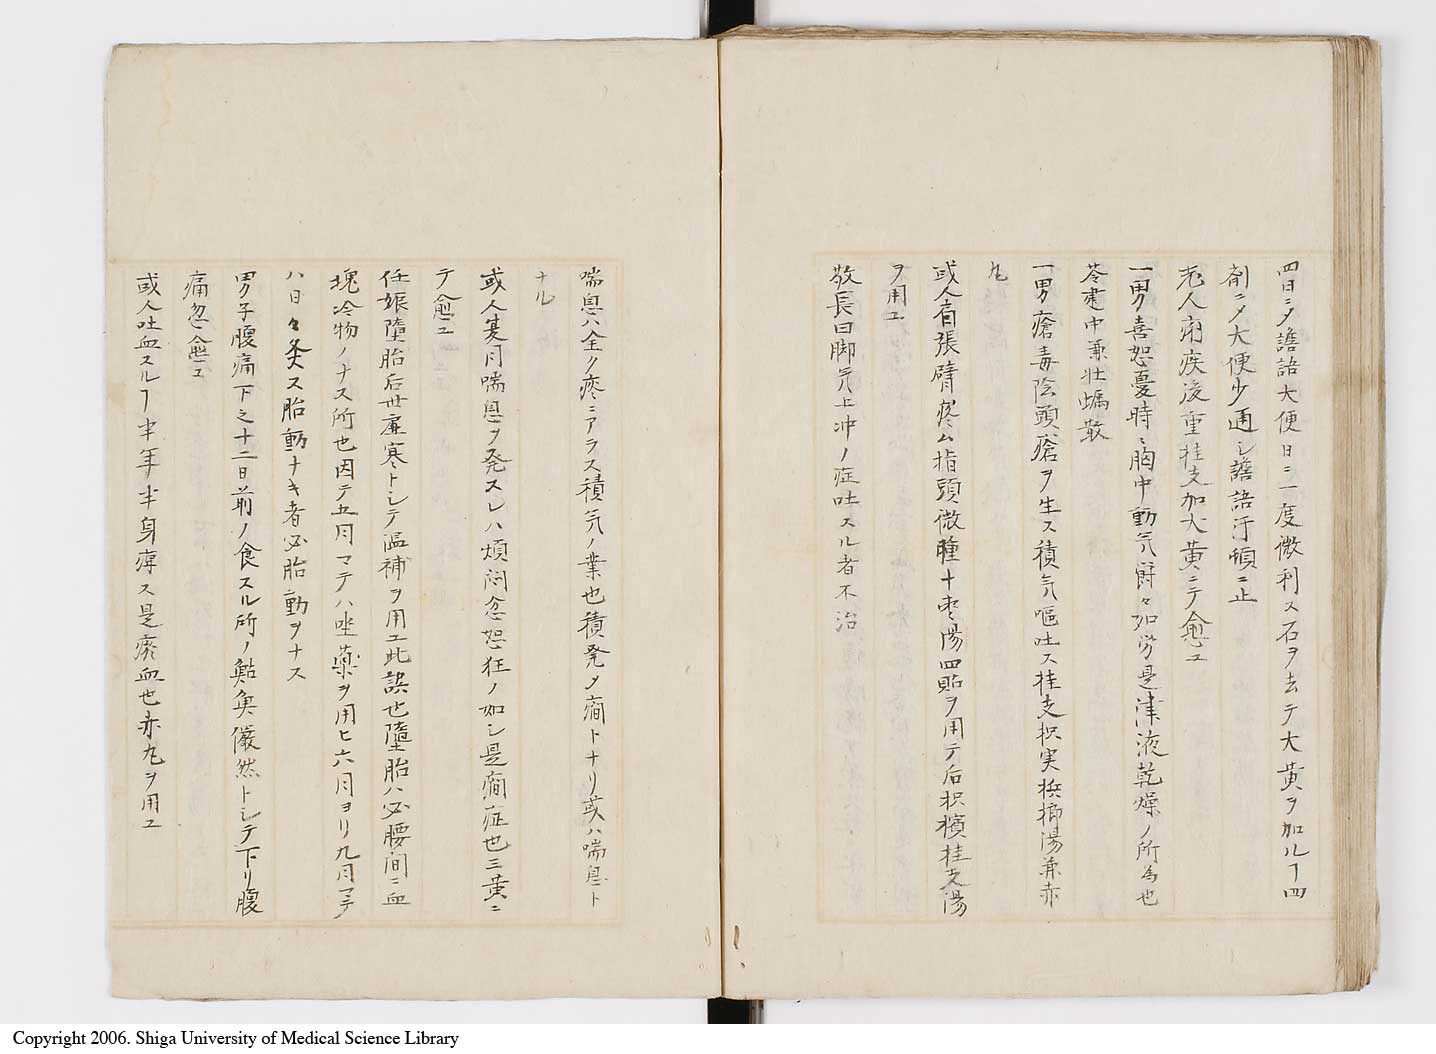 四日ニ〆譫語大便日ニ一度微利ス石ヲ去テ大黄ヲ加ルヿ四
剤ニ〆大便少通シ譫語汗頓ニ止
老人痢疾後重桂支加大黄ニテ愈ユ
一男喜怒憂時〻胸中動気欝々如労是津液乾燥ノ所為也
苓建中兼壮蛎散
一男瘡毒陰頭瘡ヲ生ス積気嘔吐ス桂支枳実梹榔湯兼赤
丸
或人肩張臂疼ム指頭微腫十枣湯四貼ヲ用テ后枳檳桂支湯
ヲ用ユ
敬長曰脚気上冲ノ症吐スル者不治
喘息ハ全ク痰ニアラス積気ノ業也積発〆癇トナリ或ハ喘息ト
ナル
或人夏月喘息ヲ発スレハ煩悶忿怒狂ノ如シ是癇症也三黄ニ
テ愈ユ
任娠墮胎后世虚寒トシテ温補ヲ用ユ此誤也墮胎ハ必腰間ニ血
塊冷物ノナス所也因テ五月マテハ坐薬ヲ用ヒ六月ヨリ九月マテ
ハ日々灸ス胎動ナキ者必胎動ヲナス
男子腹痛下之十二日前ノ食スル所ノ鮎魚儼然トシテ下リ腹
痛忽愈ユ
或人吐血スルヿ半年半身痺ス是瘀血也赤丸ヲ用ユ
Copyright 2006. Shiga University of Medical Science Library